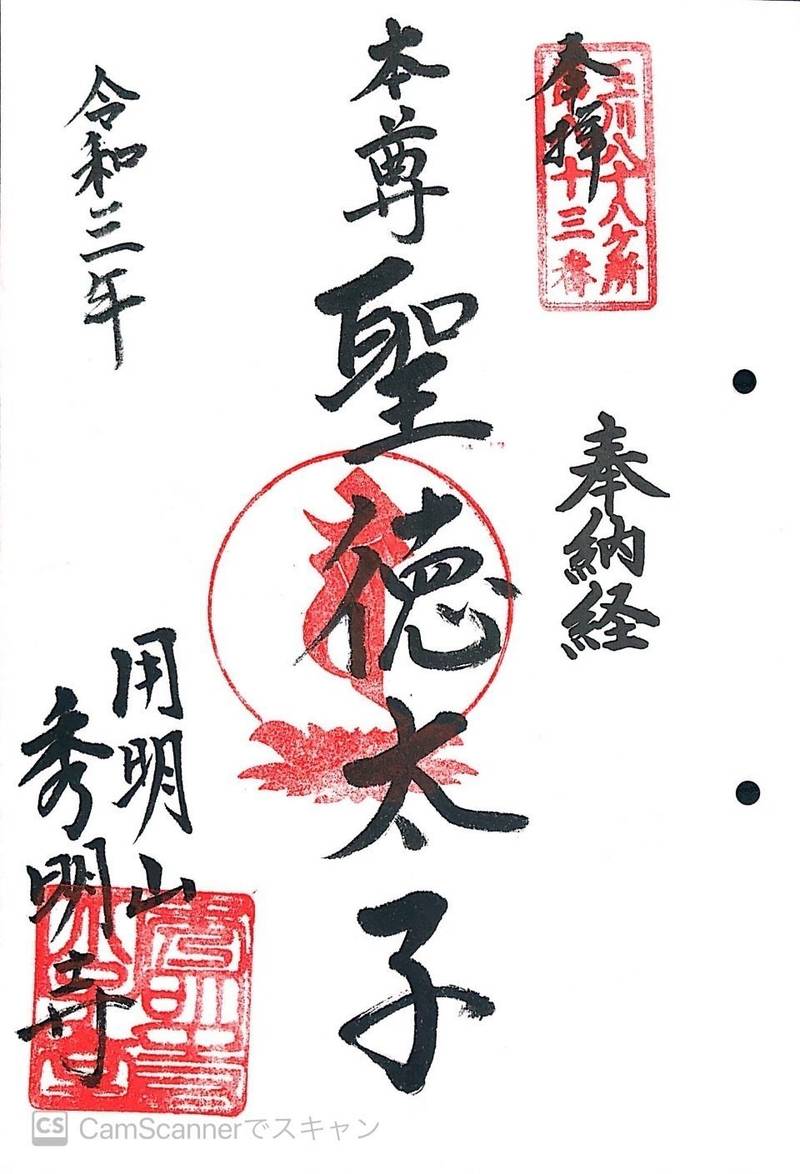 奉拝
川八十八ケ所
十三番
奉納経
本尊 聖徳太子
令和三年
用明山
秀明寺
CS CamScannerでスキャン